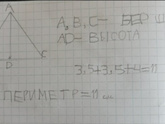 A
A, B, C-
AD-ВЫСОТА
C
3,5+3,5+4=11
ПЕРИМЕТР=11